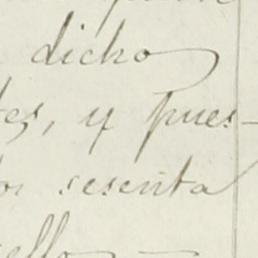 dicho
tes, y pues-
os sesenta
ello